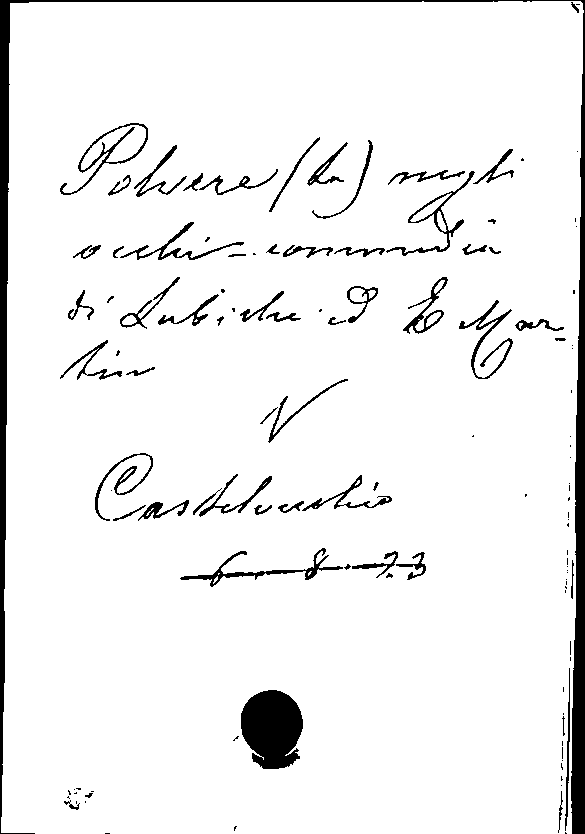 Polvere (La) negli
occhi - commedia
di Labiche ed E Mar-
tin
V
Castelvecchio
6. 8. 73